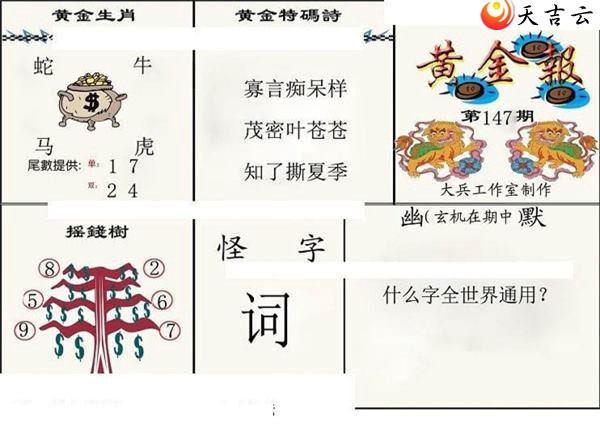 黄金生肖
蛇 牛
马 虎
尾數提供: 单: 1 7
双: 2 4
黄金特碼詩
寡言痴呆样
茂密叶苍苍
知了撕夏季
天吉云
黄金報
第147期
大兵工作室制作
摇錢樹
8 2
5 6
9 7
怪 字
词
幽(玄机在期中)默
什么字全世界通用?